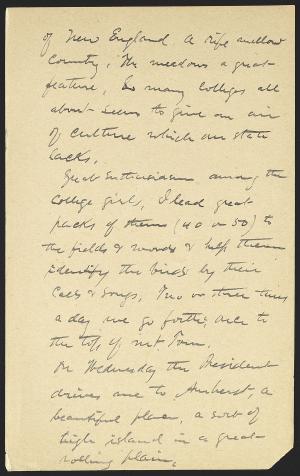 of New England. A ripe mellow
country, the meadows a great
feature, so many colleges all
about seem to give an air
of culture which our state
lacks.
Great enthusiasm among the
college girls, I lead great
packs of them (40 or 50) to
the fields & woods & help them
identify the birds by their
calls & songs. Two or three times
a day we go forth; over to
the top of Mt. Tom.
On Wednesday the President
drives me to Amherst, a
beautiful place, a sort of
high island in a great
rolling plain,